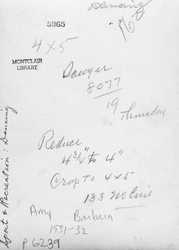 Dancing
5965
4x5
MONTCLAIR
LIBRARY
Sawyer
8077
19
Thursday
Reduce
4 3/4" to 4"
Crop to 4x5"
133
Amy Barbara
1931-32
Sport & Recreation: Dancing
P 6239